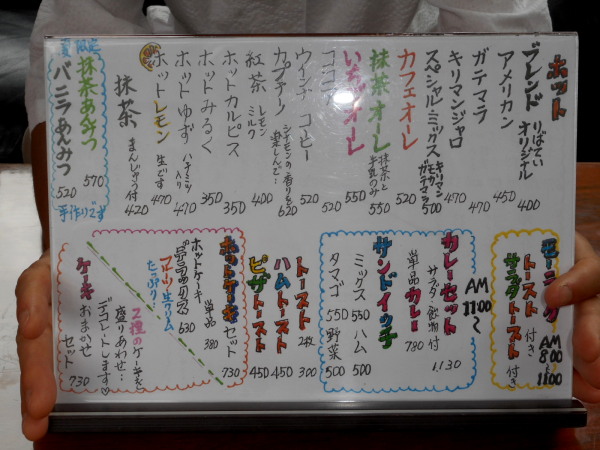 ホット
ブレンド りばてぃオリジナル 400
アメリカン 450
ガテマラ 470
キリマンジャロ 470
スペシャルミックス キリマン モカ ガテマラ 500
カフェオーレ 520
抹茶オーレ 抹茶と牛乳のみ 550
いちごオーレ 550
ココア 520
ウインナーコーヒー 520
カプチーノ シナモンの香りを楽しんで… 620
紅茶 レモン ミルク 400
ホットカルピス 350
ホットみるく 350
ホットゆず ハチミツ入り 470
ホットレモン 生です 470
抹茶 まんじゅう付 420
夏限定
抹茶あんみつ 570
バニラあんみつ 520
手作りです
モーニング
AM 8:00〜11:00
トースト 付き
サラダトースト 付き
AM 11:00〜
カレーセット サラダ・飲物付 1,130
単品カレー 780
サンドイッチ
ミックス 550 ハム 500
タマゴ 550 野菜 500
トースト 2枚 300
ハムトースト 450
ピザトースト 450
ホットケーキセット 730
ホットケーキ 単品 380
630
フルーツ・生クリーム
たっぷり
2種のケーキを
盛りあわせ…
デコレートします♡
ケーキおまかせセット 730